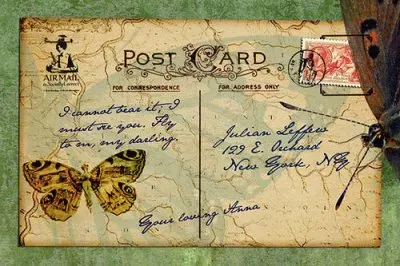 POST CARD
AIR MAIL
FOR CORRESPONDENCE
FOR ADDRESS ONLY
I cannot bear it. I
must see you. Fly
to me, my darling.
Your loving Anna
Julian Leffew
129 E. Orchard
New York, NY